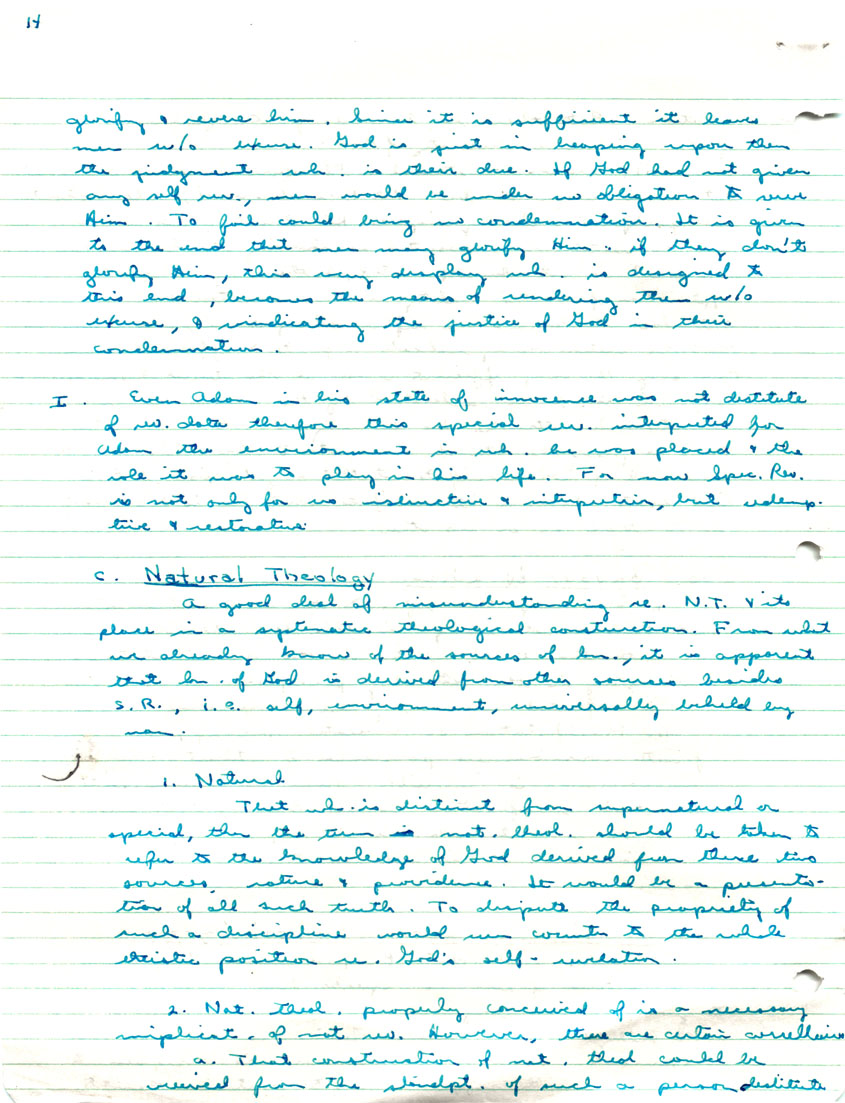 14
glorify & revere him. Since it is sufficient it leaves
men w/o excuse. God is just in heaping upon them
the judgment wh. is their due. If God had not given
any self rev., men would be under no obligation to revere
Him. To fail could bring no condemnation. It is given
to the end that men may glorify Him. if they don't
glorify Him, this very display wh. is designed to
this end, becomes the means of rendering them w/o
excuse, & vindicating the justice of God in their
condemnation.
I. Even Adam in his state of innocence was not destitute
of rev. data therefore this special rev. interpreted for
Adam the environment in wh. he was placed & the
role it was to play in his life. For now Spec. Rev.
is not only for us & but redemp-
tive & restorative
C. Natural Theology
A good deal of misunderstanding re. N.T. & its
place in a systematic theological construction. From what
we already know of the sources of kn., it is apparent
that kn. of God is derived from other sources besides
S.R., i.e. self, environment, universally beheld by
man.
1. Natural
That wh. is distinct from supernatural or
special, then the term nat. theol. should be taken to
refer to the knowledge of God derived from these two
sources, nature & providence. It would be a presenta-
tion of all such truth. To dispute the propriety of
such a discipline would run counter to the whole
theistic position re. God's self-revelation.
2. Nat. theol. properly conceived of is a necessary
implicat. of nat rev. However, there are certain
a. That construction of nat. theol could be
viewed from the standpt. of such a person destitute